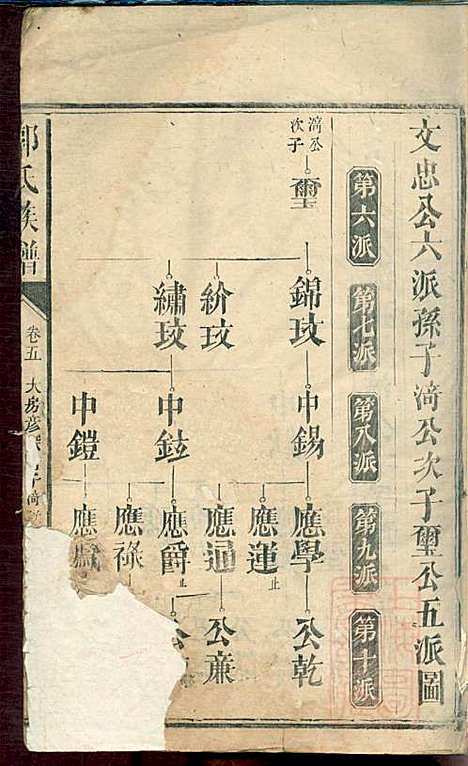 文忠公六派孫子渮公次子璽公五派圖
第六派
第七派
第八派
第九派
第十派
渮公次子
璽
錦玟
紒玟
繡玟
中錫
中鉉
中鎧
應學
應運
止
應逼
應爵
止
應祿
應
公乾
公亷
公
氏族譜
卷五
大房彦